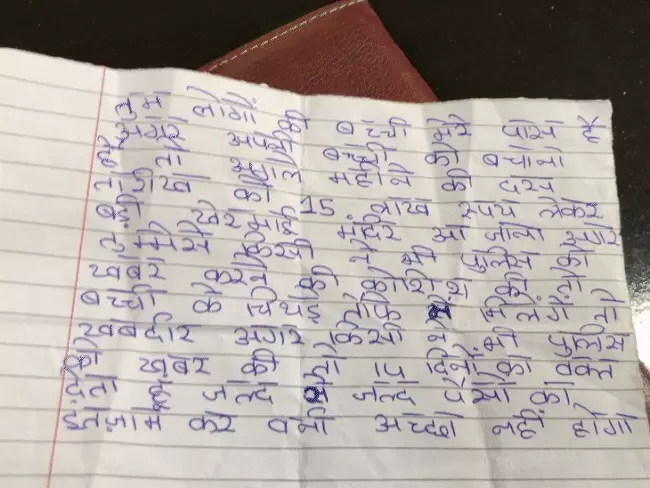 तुम लोगों की बच्ची मेरे पास है
अगर अपनी बच्ची को बचाना
है तो अगले महीने की दस
तारीख को 15 लाख रुपय लेकर
बड़ी खेरमाई मंदिर आ जाना अगर
तुममेसे किसी ने भी पुलिस को
खबर करने की कोशिश की तो
बच्ची के चिथड़े तक मिलेंगे तो
खबरदार अगर किसी ने भी पुलिस
को खबर की तो दिनों का वक्त
देता हूँ जल्द से जल्द पैसो का
इंतजाम कर वर्ना अच्छा नहीं होगा